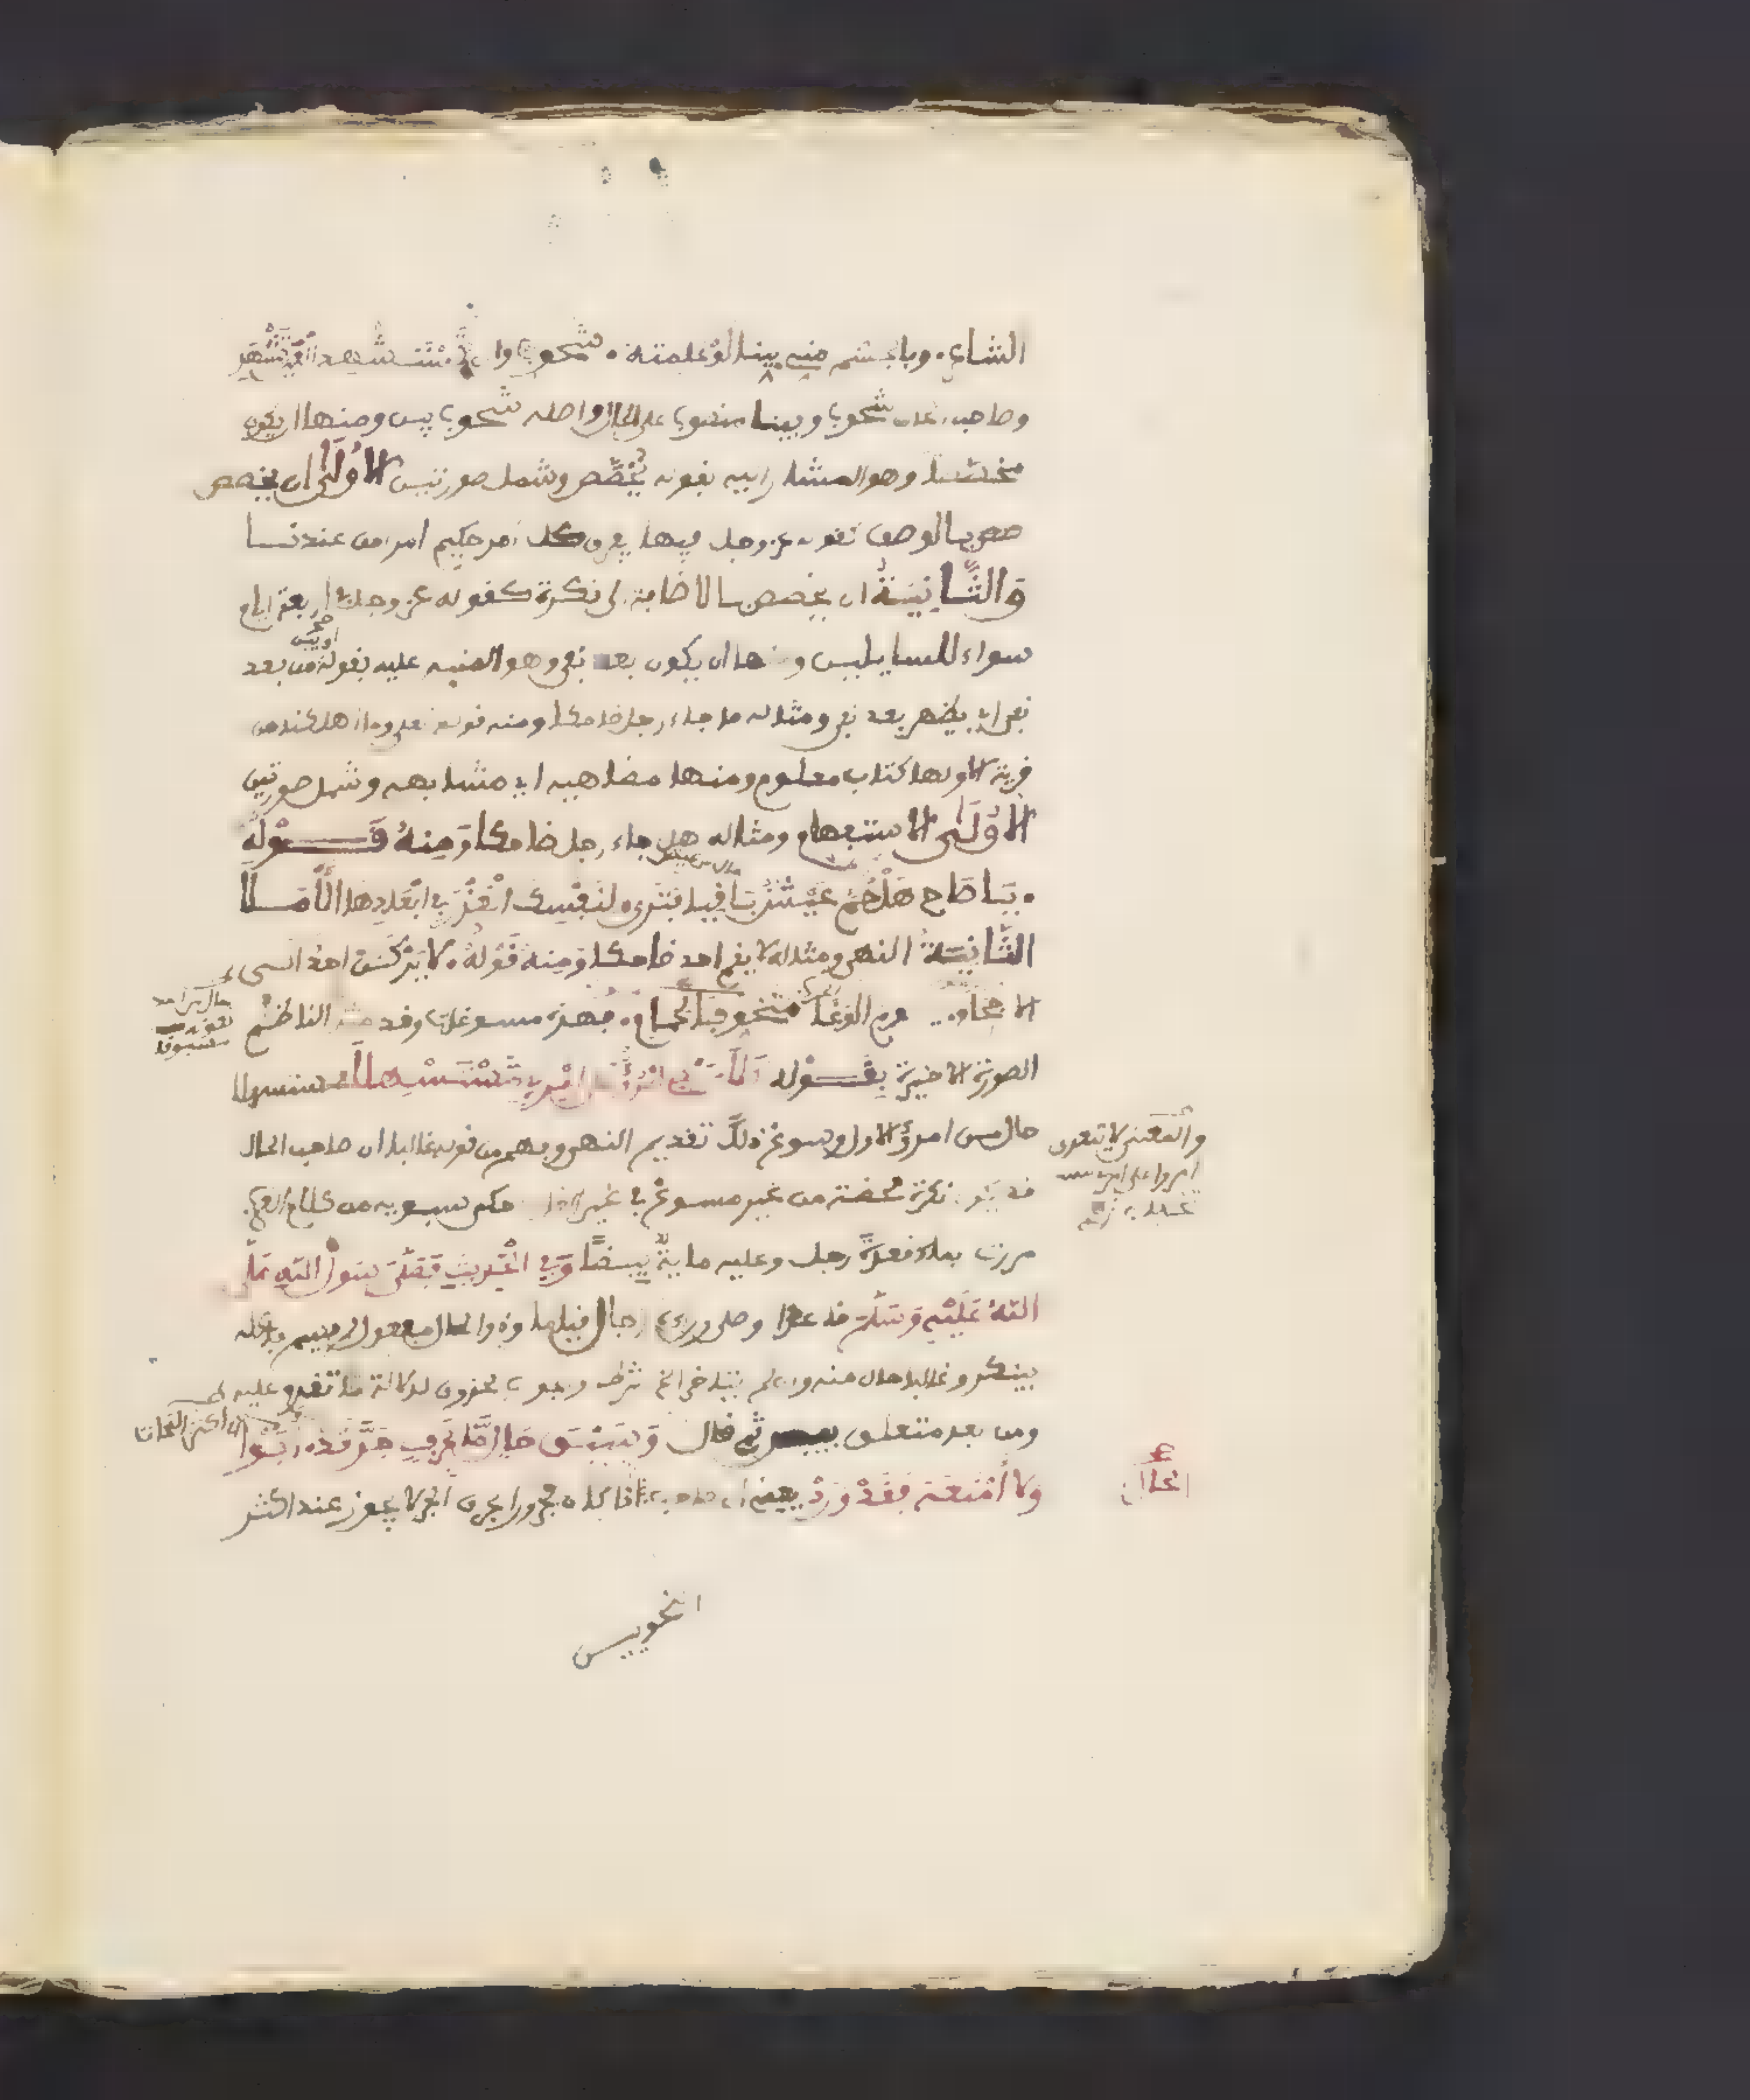 الشاعر. وبالجسم منه بينا لو علمته. شحوب وان تستشهد العين تشهد
وصاحب الحال شحوب وبينا منصوب على الحال واصله شحوب بين ومنها ان يكون
مخصصا وهو المشار اليه بقوله يخصص وشمل صورتين الاولى ان يخصص
بالوصف كقوله عز وجل فيها يفرق كل امر حكيم امرا من عندنا
والثانية ان يخصص بالاضافة الى نكرة كقوله عز وجل في اربعة ايام
سواء للسايلين ومنها ان يكون بعد نفي وهو المنبه عليه بقوله من بعد
او يبن
نفي اي يظهر بعد نفي ومثاله ما جاء رجل ضاحكا ومنه قوله تعلى وما اهلكنا من
قرية الا ولها كتاب معلوم ومنها مضاهيه اي مشابهه وشمل صورتين
الاولى الاستفهام ومثاله هل جاء رجل ضاحكا ومنه قوله
. يا صاح هل حم عيش باقيا فترى. لنفسك العذر في ابعادها الاملا
الثانية النهي ومثاله لا يقم احد ضاحكا ومنه قوله. لا يركنن احد الى
الاحجام.. يوم الوغا متخوفا لحمام. فهذه مسوغات وقد مثل الناظم
الصورة الاخيرة بقوله لا يبغ امرؤ على امرئ مستسهلا فمستسهلا
حال من امرؤ الاول وسوغ ذلك تقديم النهي وفهم من قوله غالبا ان صاحب الحال
قد يكون نكرة محضة من غير مسوغ في غير الغالب حكى سبويه من كلام العرب
مررت بماء قعدة رجل وعليه ماية بيضا وفي الحديث فصلى رسول الله صلى
الله عليه وسلم قاعدا وصلى وراءه رجال قياما وذو الحال مفعول لم يسم فاعله
ينكر وغالبا حال منه وان لم يتاخر الخ شرط وجوب محذوف لدلالة ما تقدم عليه
ومن بعد متعلق بيبن ثم قال وسبق حال ما بحرف جر قد ابوا
ولا امنعه فقد ورد يعني ان صاحب الحال اذا كان مجرورا بحرف الجر لا يجوز عند اكثر
والمعنى لا يتعدى
امرؤ على امرئ
الحال
اى اكثر النحاة
النحويين